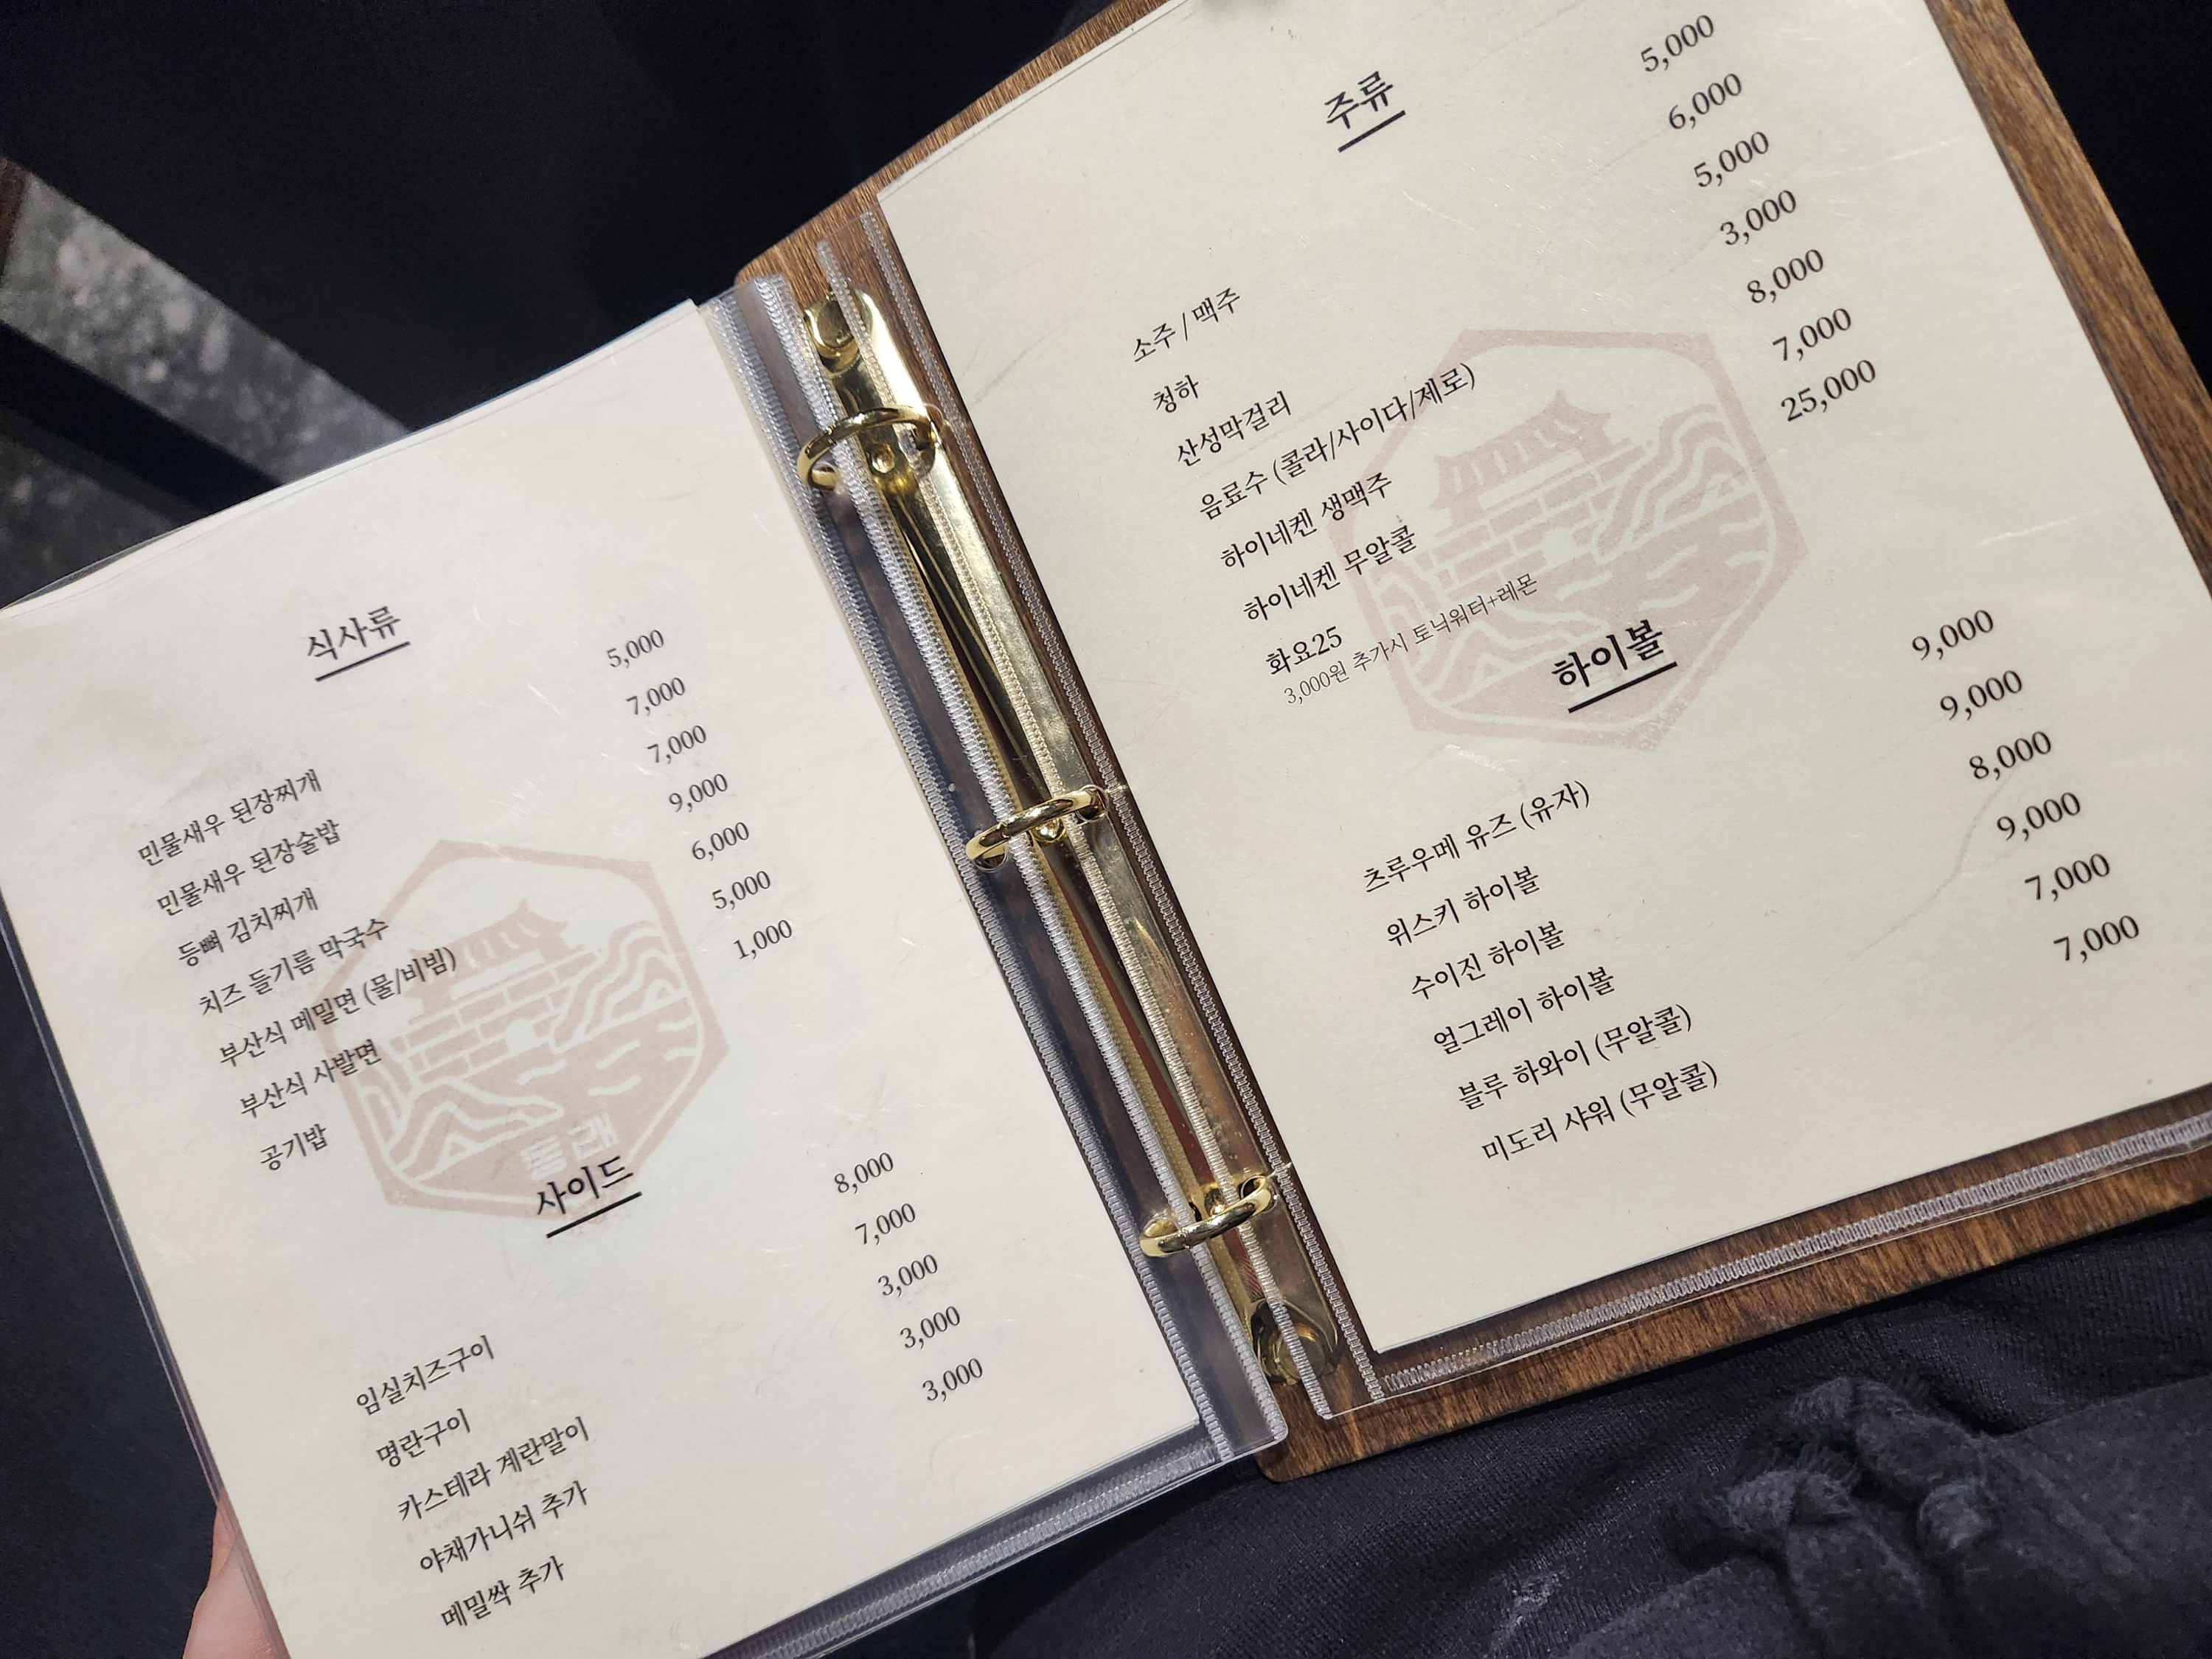 식사류
민물새우 된장찌개 5,000
민물새우 된장술밥 7,000
등뼈 김치찌개 7,000
치즈 들기름 막국수 9,000
부산식 메밀면 (물/비빔) 6,000
부산식 사발면 5,000
공기밥 1,000
사이드
임실치즈구이 8,000
명란구이 7,000
카스테라 계란말이 3,000
야채가니쉬 추가 3,000
메밀싹 추가 3,000
주류
소주 / 맥주 5,000
청하 6,000
산성막걸리 5,000
음료수 (콜라/사이다/제로) 3,000
하이네켄 생맥주 8,000
하이네켄 무알콜 7,000
화요25 25,000
3,000원 추가시 토닉워터+레몬
하이볼
츠루우메 유즈 (유자) 9,000
위스키 하이볼 9,000
수이진 하이볼 8,000
얼그레이 하이볼 9,000
블루 하와이 (무알콜) 7,000
미도리 샤워 (무알콜) 7,000